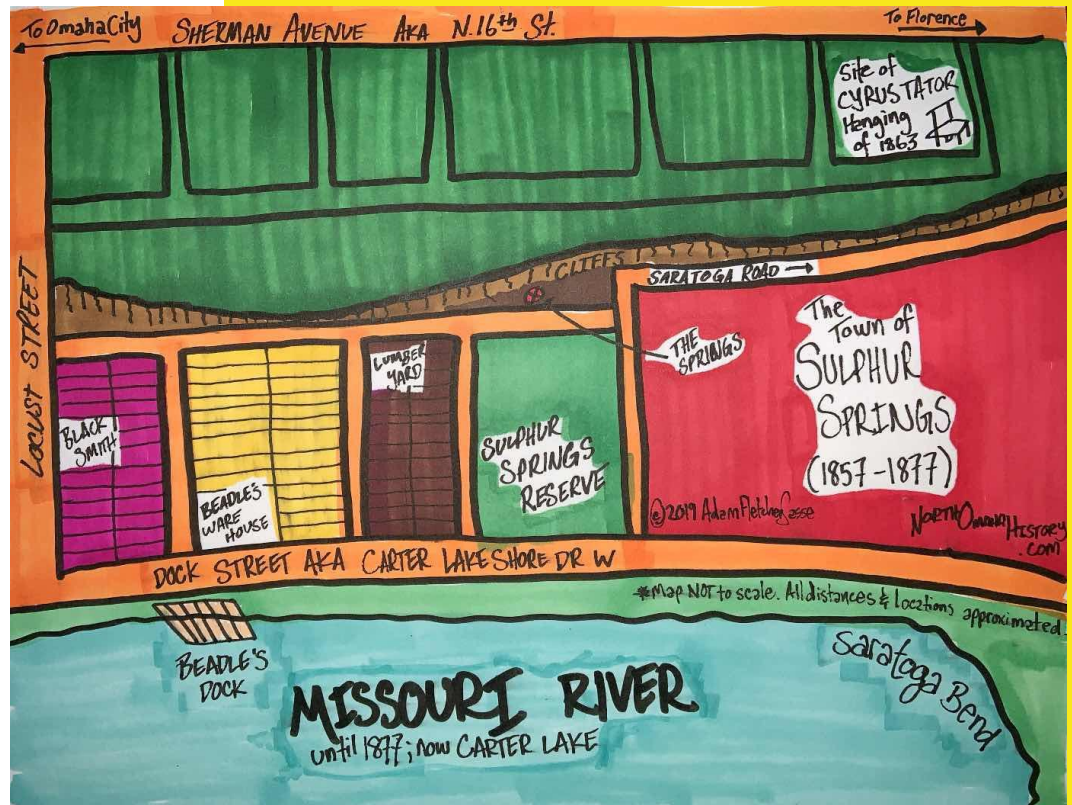 To Omaha City
SHERMAN AVENUE AKA N. 16th St.
To Florence
Site of
CYRUS TATOR
Hanging
of 1863
LOCUST STREET
CLIFFS
SARATOGA ROAD
THE
SPRINGS
The
Town of
SULPHUR
SPRINGS
(1857-1877)
BLACK
SMITH
BEADLE'S
WARE
HOUSE
LUMBER
YARD
SULPHUR
SPRINGS
RESERVE
©2019 Adam Fletcher Sasse
NORTHOMAHAHISTORY
.com
DOCK STREET AKA CARTER LAKE SHORE DR W
*Map NOT to scale. All distances & locations approximated.
BEADLE'S
DOCK
MISSOURI RIVER
until 1877; now CARTER LAKE
Saratoga Bend